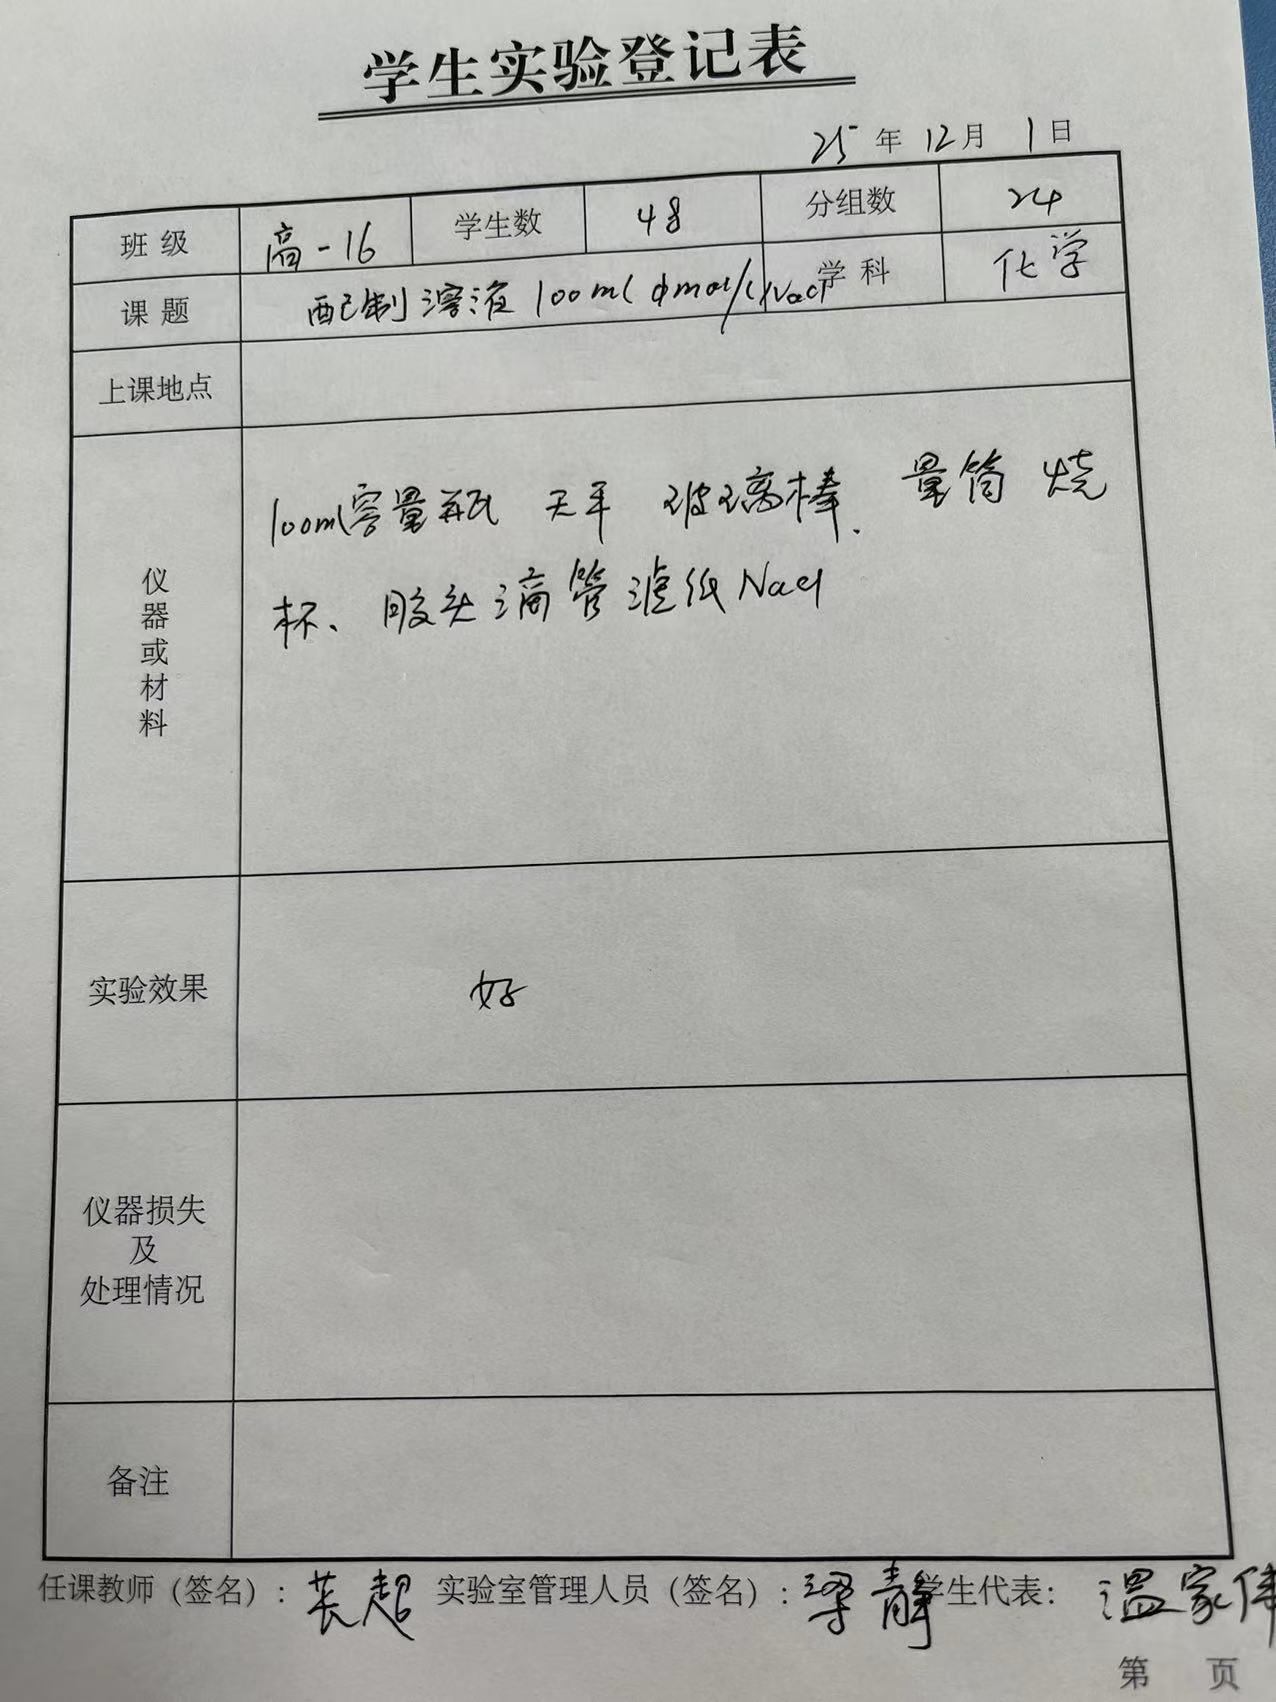 学生实验登记表
25年12月1日
班级 高-16 学生数 48 分组数 24
课题 配制溶液100ml mol/L NaCl 学科 化学
上课地点
仪器或材料
100ml容量瓶 天平 玻璃棒. 量筒 烧
杯、胶头滴管 滤纸 NaCl
实验效果 好
仪器损失
及
处理情况
备注
任课教师（签名）: 超 实验室管理人员（签名）: 梁静 学生代表: 温家伟
第 页